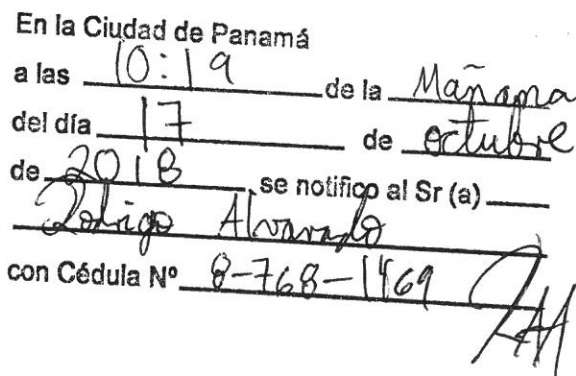 En la Ciudad de Panamá
a las 10:19 de la Mañana
del día 17 de octubre
de 2018, se notifico al Sr (a)
Rodrigo Alvarado
con Cédula Nº 8-768-1469